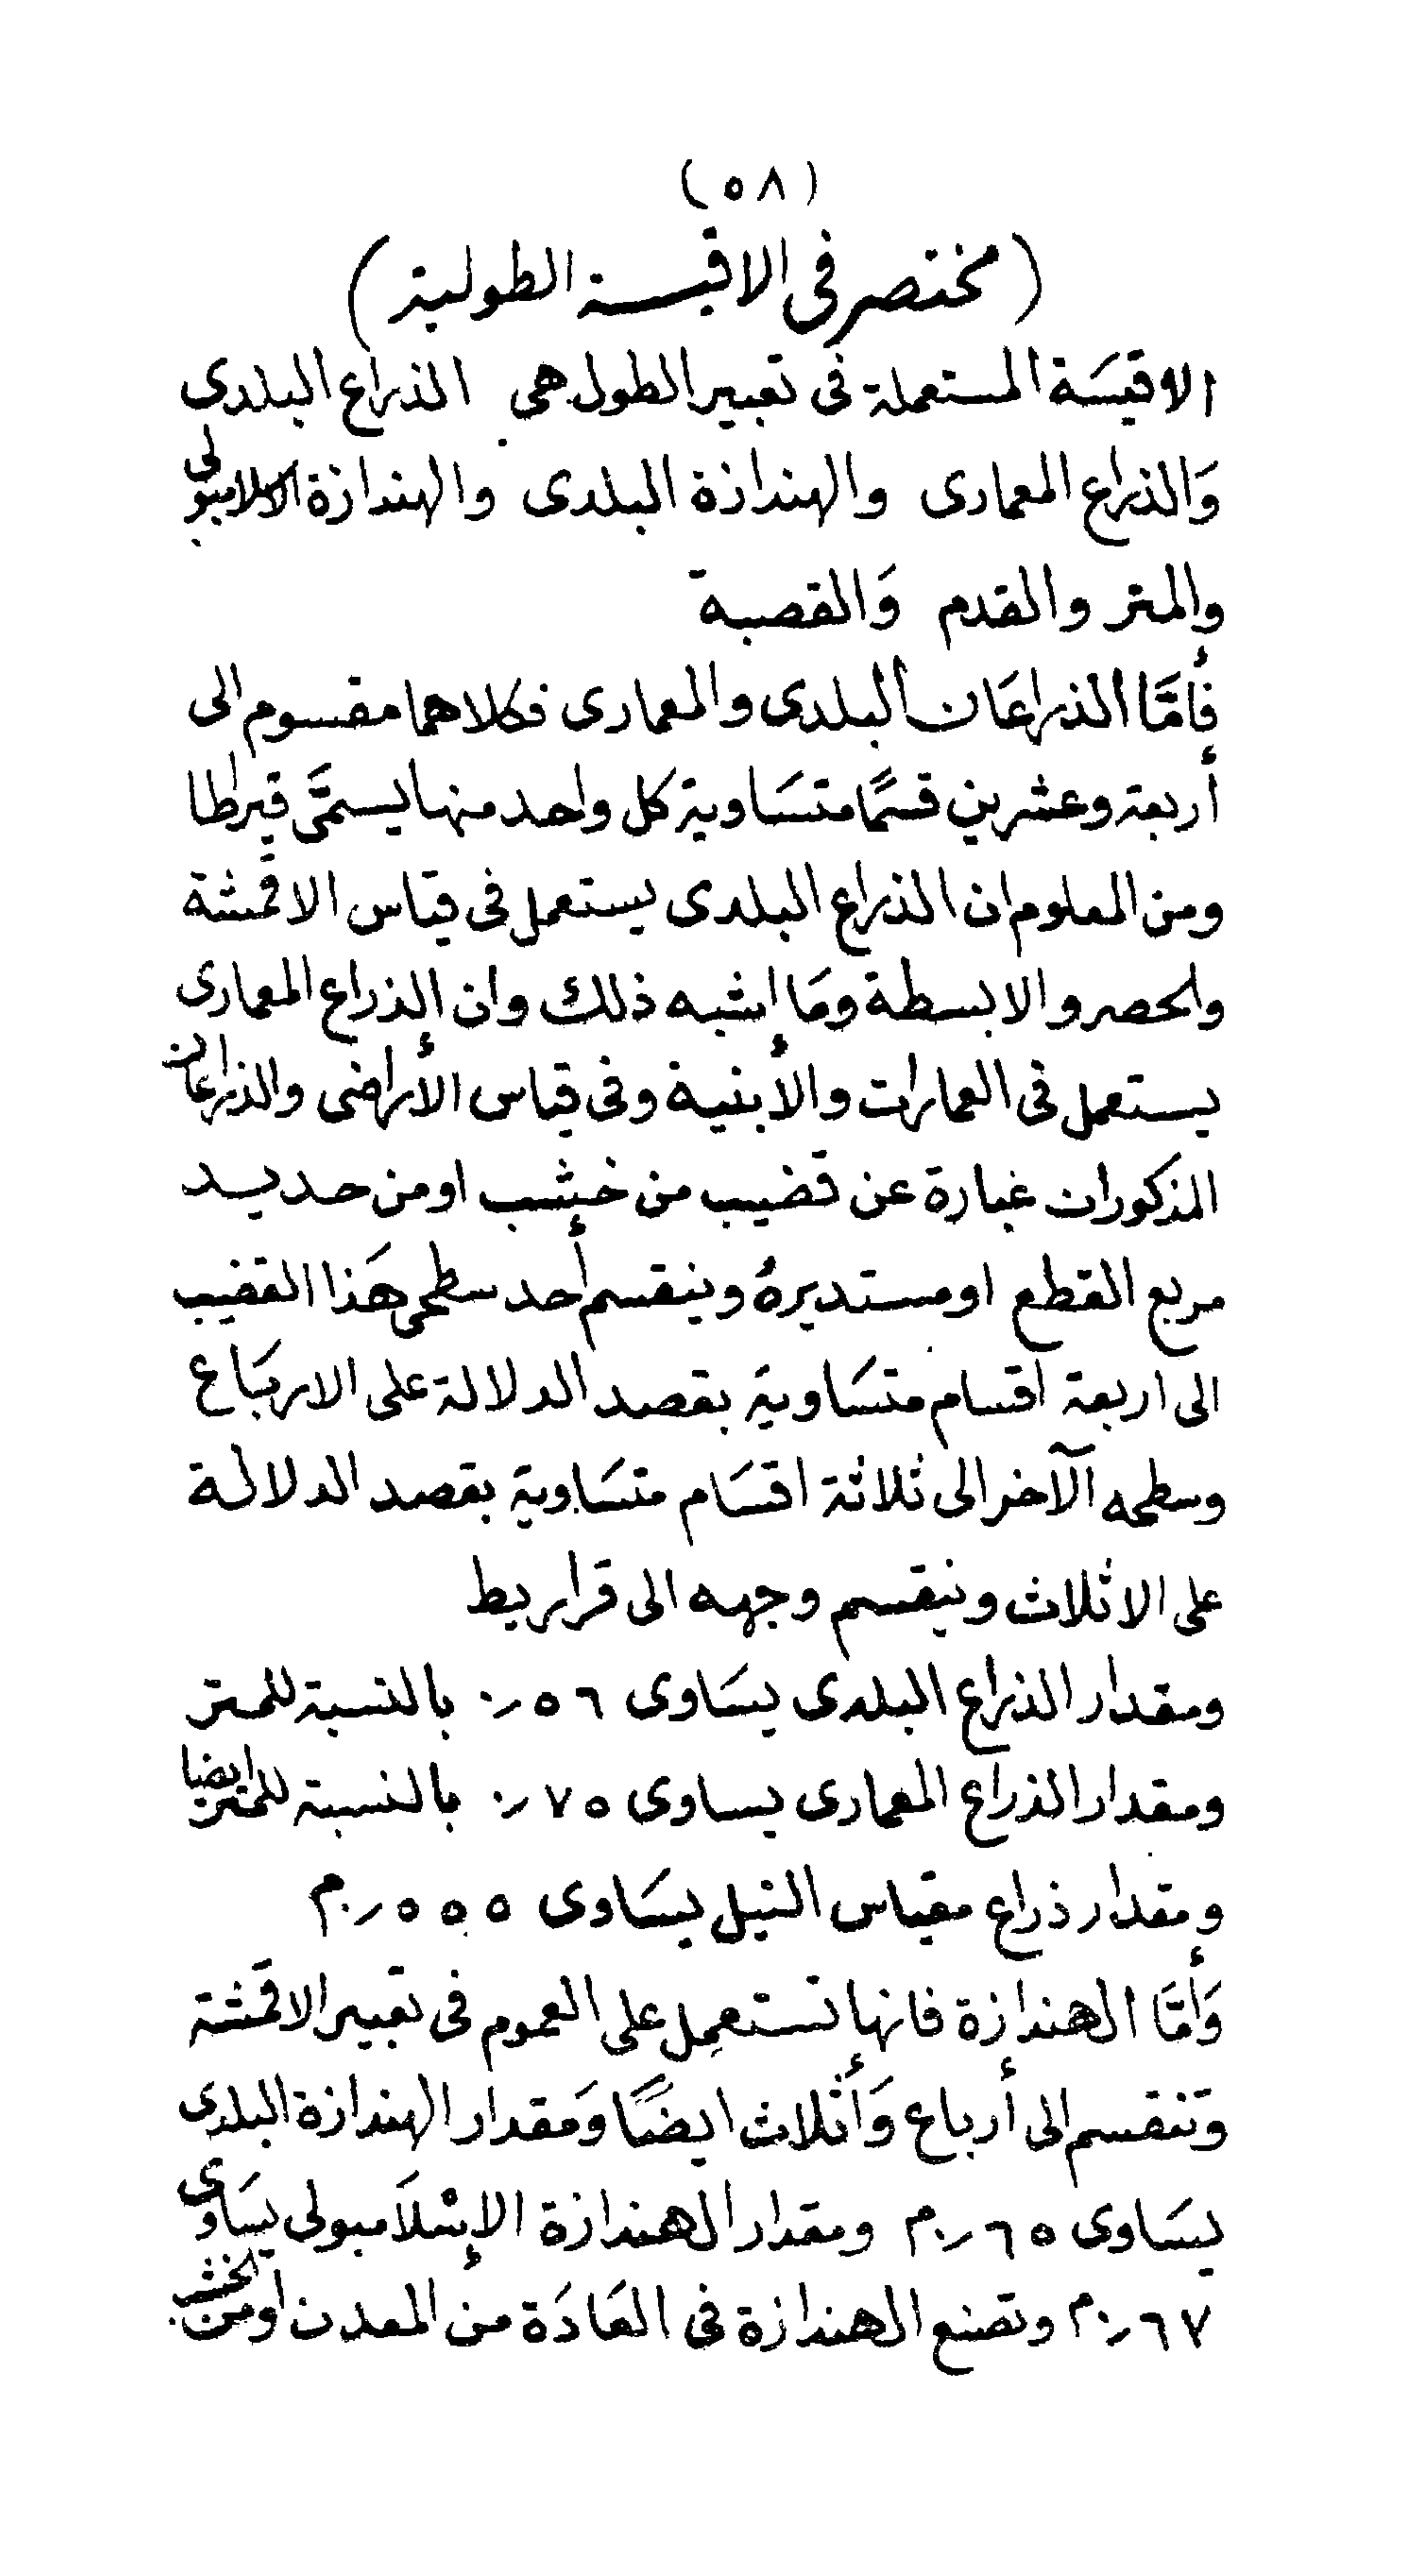 (٥٨)
(مختصر فى الاقيسة الطولية)
الاقيسَة المستعملة فى تعبير الطول هى الذراع البلدى
وَالذراع المعمارى والهندازة البلدى والهندازة الاسلامبولى
والمتر والقدم وَالقصبة
فأمَّا الذراعَان البلدى والمعمارى فكلاهما مقسوم الى
أربعة وعشرين قسمًا متسَاوية كل واحد منها يسمَّى قيراطا
ومن المعلوم ان الذراع البلدى يستعمل فى قياس الاقمشة
والحصر والابسطة ومَا اشبه ذلك وان الذراع المعمارى
يستعمل فى العمارات والأبنية وفى قياس الأراضى والذراعان
المذكوران عبارة عن قضيب من خشب او من حديد
مربع القطع او مستديرهُ وينقسم أحد سطحى هَذا القضيب
الى اربعة اقسام متسَاوية بقصد الدلالة على الاربَاع
وسطحه الآخر الى ثلاثة اقسَام متسَاوية بقصد الدلالة
على الاثلاث وينقسم وجهه الى قراريط
ومقدار الذراع البلدى يسَاوى ٥٦ر٠ بالنسبة للمتر
ومقدار الذراع المعمارى يساوى ٧٥ر٠ بالنسبة للمتر ايضا
ومقدار ذراع مقياس النيل يسَاوى ٥٥٥ر٠م
وَأمَّا الهندازة فانها تستعمِل على العموم فى تعبير الاقمشة
وتنقسم الى أرباع وَأثلاث ايضًا وَمقدار الهندازة البلدى
يسَاوى ٦٥ر٠م ومقدار الهندازة الإسْلاَمبولى يسَاوى
٦٧ر٠م وتصنع الهندازة فى العَادَة من المعدن او من الخشب